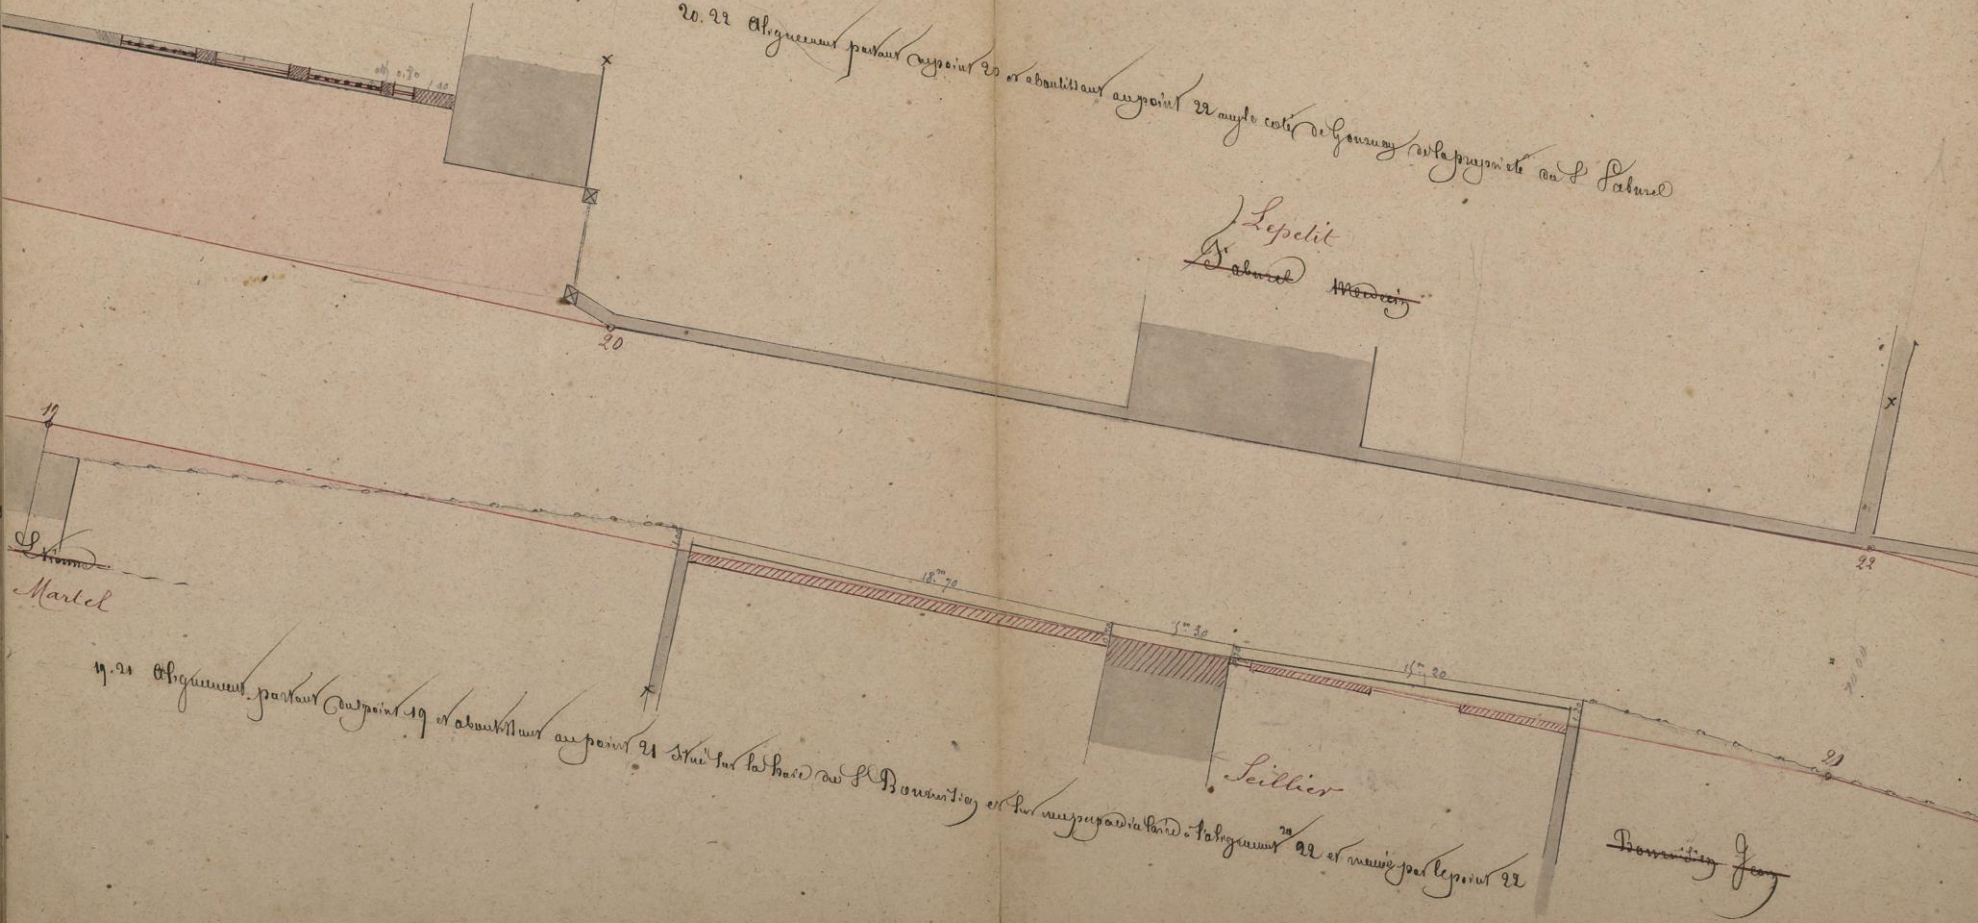 20.22 Alignement partant du point 20 et aboutissant au point 22 angle coté de Gournay de la propriété du S. Paburel
0.80
Lepetit
Paburel Medecin
20
19
22
Martel
18.m70
5m30
15m20
19.21 Alignement partant du point 19 et aboutissant au point 21 situé sur la haie du S. et sur une perpendiculaire à l'alignement 20 22 et menée par le point 22
21
Seillier
20.00
Jean